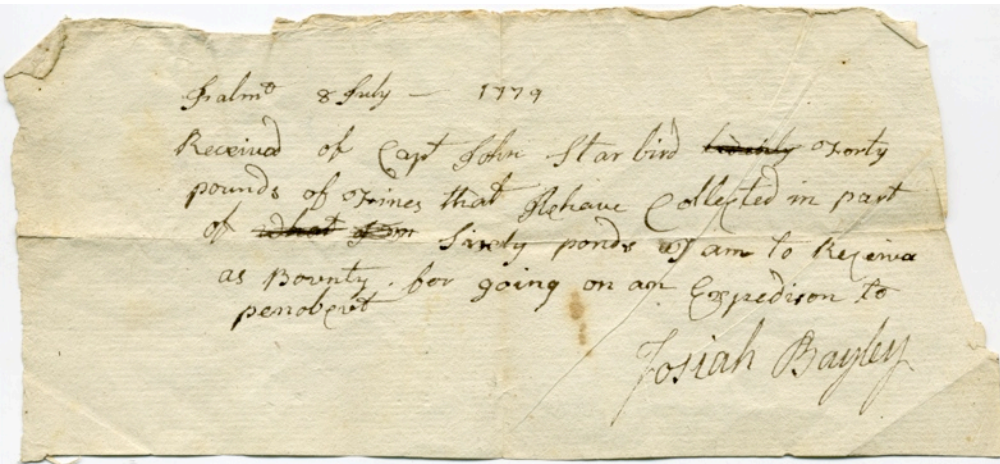 Falmo 8 July — 1779
Received of Capt John Starbird twenty Forty
pounds of Fines that He have Collected in part
of what I am Sixty ponds I am to Receive
as Bounty. for going on an Expedison to
penobcut
Josiah Bayley